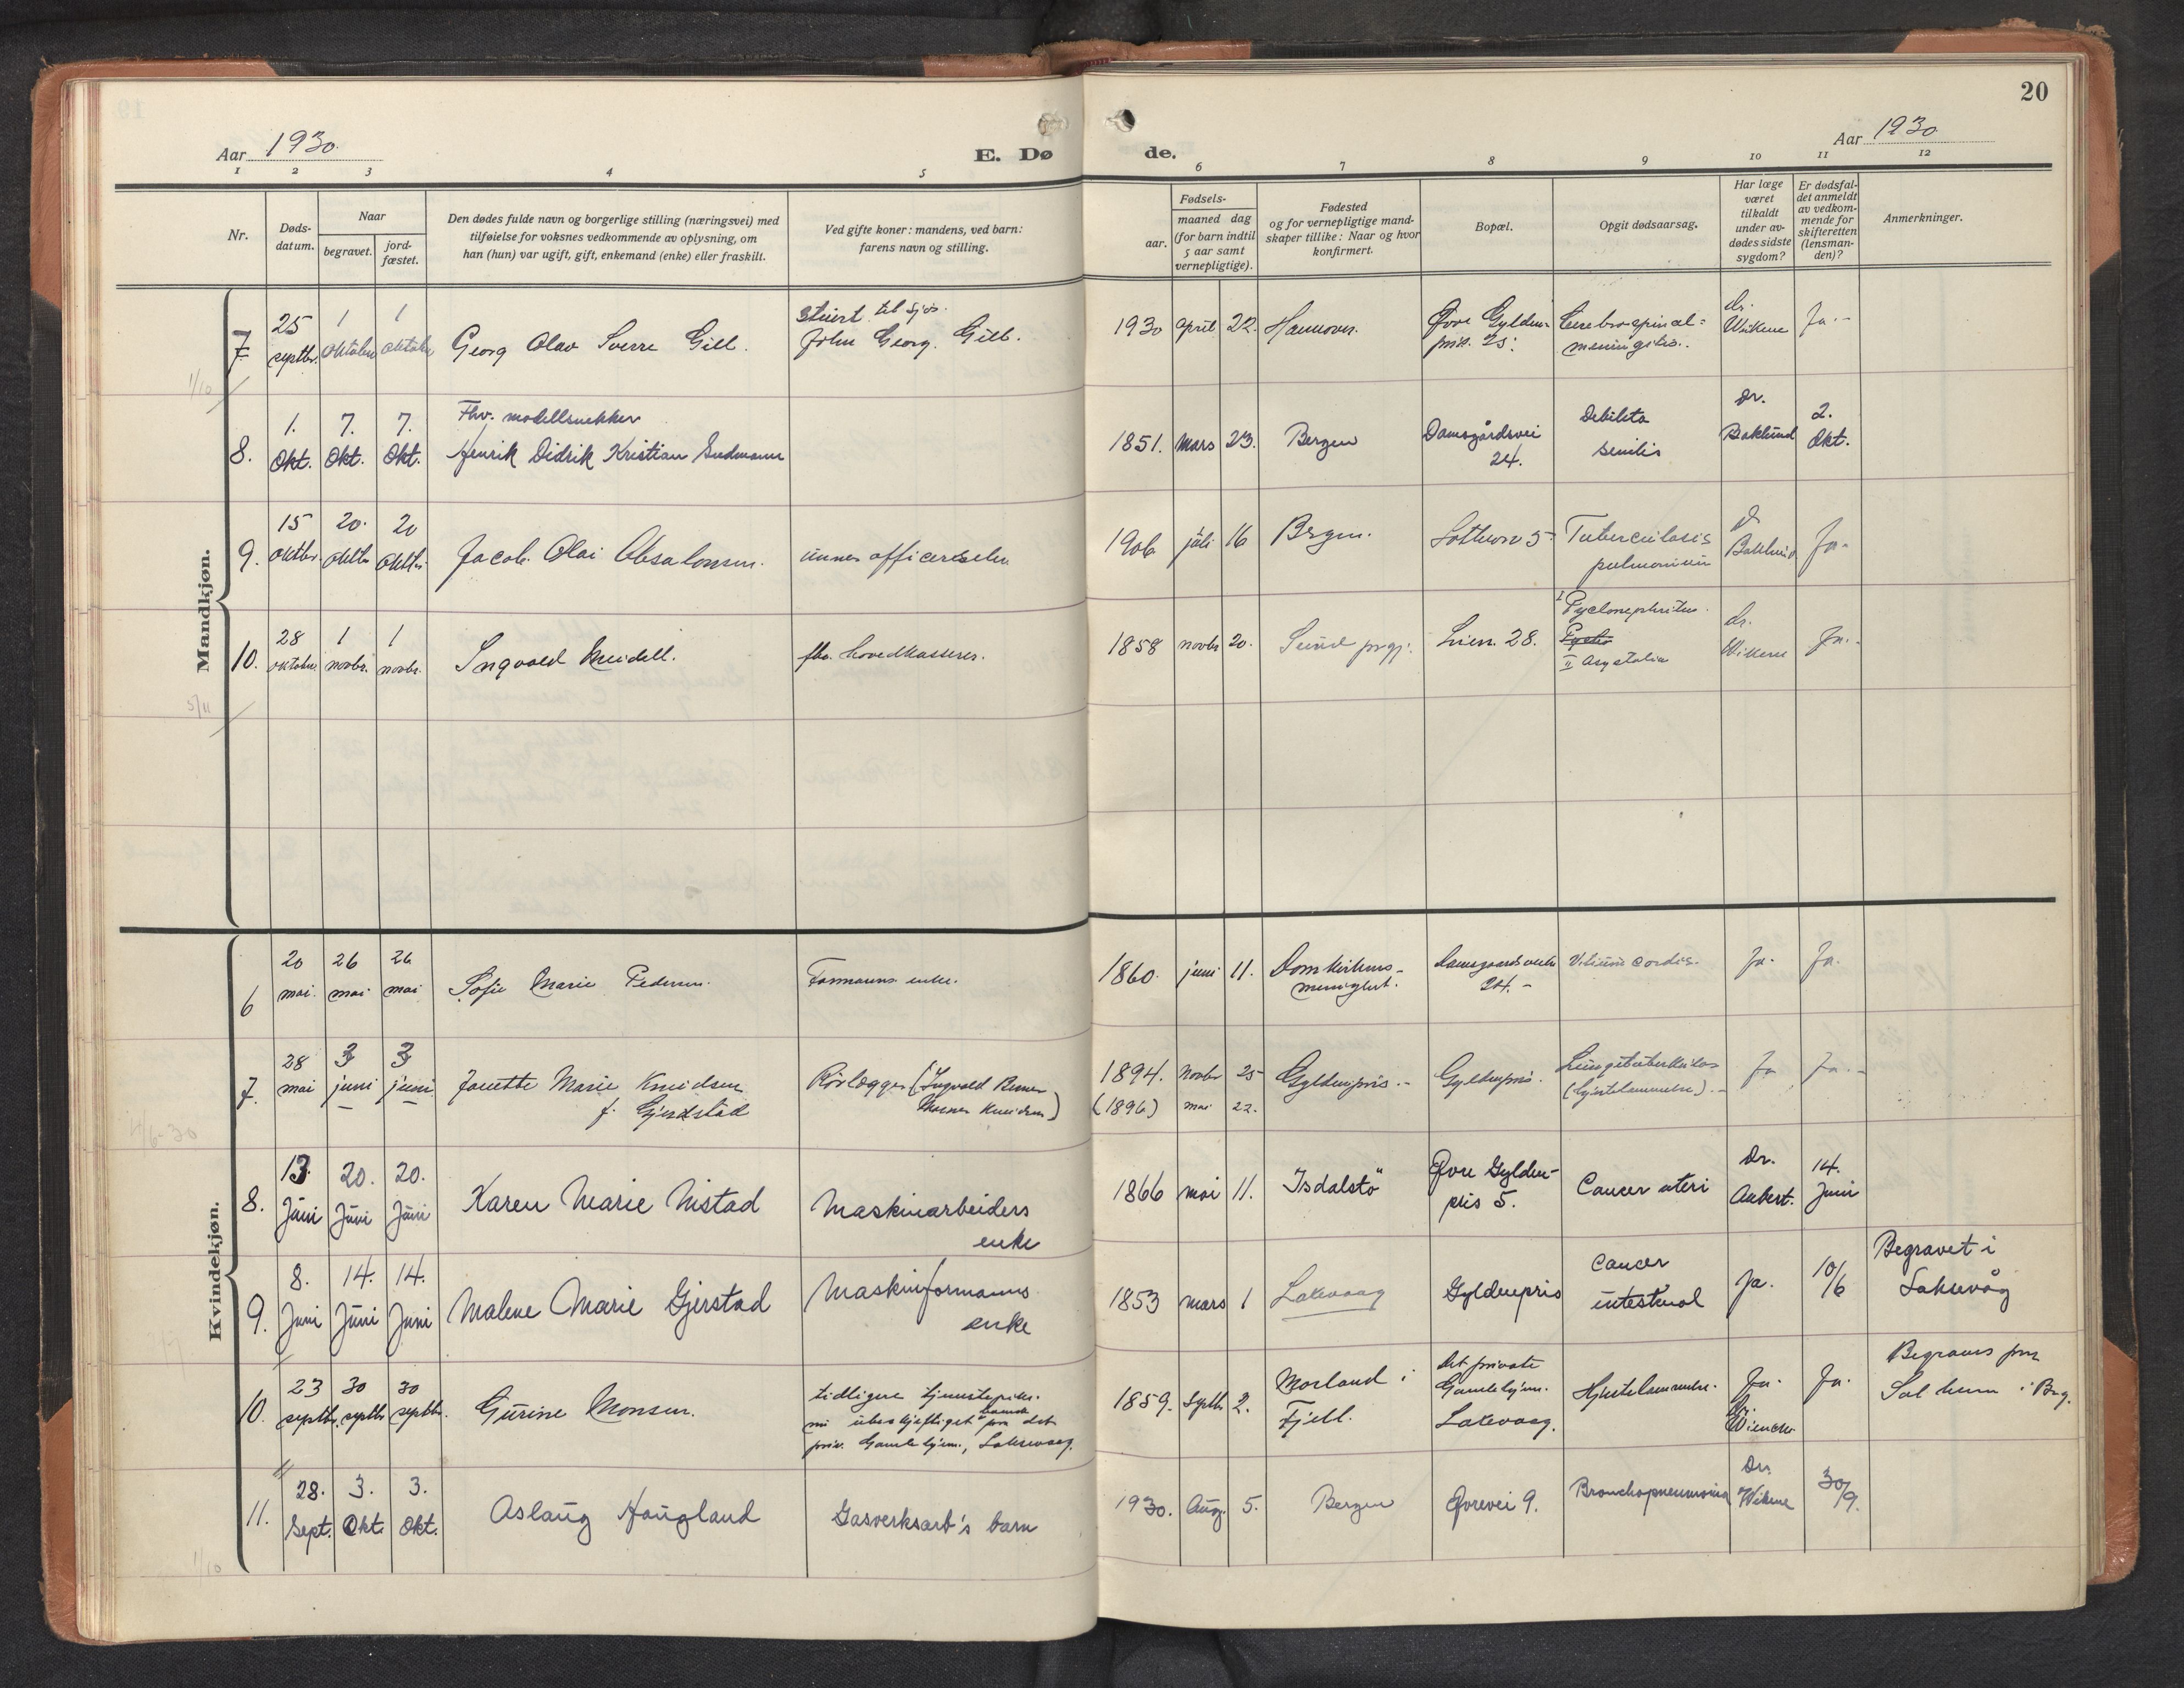 20
Aar 1930.
E. Dø
de.
Aar 1930
1 2 3 4 5 6 7 8 9 10 11 12
Nr.
Døds-
datum.
Naar
begravet.
jord-
fæstet.
Den dødes fulde navn og borgerlige stilling (næringsvei) med
tilføielse for voksnes vedkommende av oplysning, om
han (hun) var ugift, gift, enkemand (enke) eller fraskilt.
Ved gifte koner: mandens, ved barn:
farens navn og stilling.
Fødsels-
aar.
maaned dag
(for barn indtil
5 aar samt
vernepligtige).
Fødested
og for vernepligtige mand-
skaper tillike: Naar og hvor
konfirmert.
Bopæl.
Opgit dødsaarsag.
Har læge
været
tilkaldt
under av-
dødes sidste
sygdom?
Er dødsfal-
det anmeldt
av vedkom-
mende for
skifteretten
(lensman-
den)?
Anmerkninger.
Mandkjøn.
7 25 septbr. 1 oktober 1 oktober
Georg Olav Sverre Gill.
stuert til sjøs.
John Georg. Gill.
1930 april 22. Hannover.
Øvre Gylden-
pris. 25.
Cerebrospinal-
meningitis.
dr.
Wikene
Ja.-
1/10
8. 1. Okt. 7. Okt. 7. Okt.
Fhv. modellsnekker
Henrik Didrik Kristian Sudmann
1851. Mars 23. Bergen
Damsgårdsvei
24.
Debilitas
senilis
Dr.
Baklund
2.
Okt.
9. 15 oktbr. 20. oktbr 20 oktbr
Jacob. Olai Absalonsen.
1906 juli 16 Bergen.
5
Tuberculosis
pulmonum
Dr
Baklund
Ja.
10. 28 oktober 1 novbr. 1 novbr.
Ingvald
fhv. hovedkasserer.
1858 novbr 20. Sund prgj.
Lien. 28.
I Pyelonephritis.
II Asystolia
dr.
Wikene
Ja.-
5/11
Kvindekjøn.
6 20 mai. 26 mai 26 mai
Sofie Marie Pedersen.
Formanns enke.
1860. juni 11. Domkirkens-
menighet.
Damsgaardsveien
24.-
Vitium cordis.
Ja. Ja.
7. 28 mai 3 juni 3 juni
Janette Marie Knudsen
f. Gjerdstad
Rørlægger (Ingvald
Knudsen)
1894. Novbr 25 Gyldenpris.-
(1896) mai 22.
Gyldenpris.
Lungetuberkulose
(hjertelammelse).-
Ja Ja.-
4/6-30
8. 13. Juni 20. Juni 20. Juni
Karen Marie Nistad
Maskinarbeiders
enke
1866 mai 11. Isdalstö
Øvre Gylden-
pris 5.
Cancer uteri
Dr.
Aubert.
14.
Juni
9. 8. Juni 14. Juni 14. Juni
Malene Marie Gjerstad
Maskinformanns
enke
1853 mars 1 Laksevaag
Gyldenpris
Cancer
intestinal
Ja.
10/6
Begravet i
Laksevåg
10. 23 septbr. 30 septbr. 30 septbr.
Gurine Monsen.
tidligere tjenestepike.
nu ubeskjeftiget paa det
priv. Gamlehjem, Laksevaag.
1859. Septbr. 2. Morland i
Fjell.
Det private
Gamlehjem.
Laksevaag.
Hjertelammelse.
Ja.
Dr.
Ja.
Begraves paa
Solheim i Brg.
11. 28. Sept. 3. Okt. 3. Okt.
Aslaug Haugland
Gasverksarb's barn
1930. Aug. 5. Bergen
Øvrevei 9.
Bronchopneumonia
Dr.
Wikene
30/9.
1/10